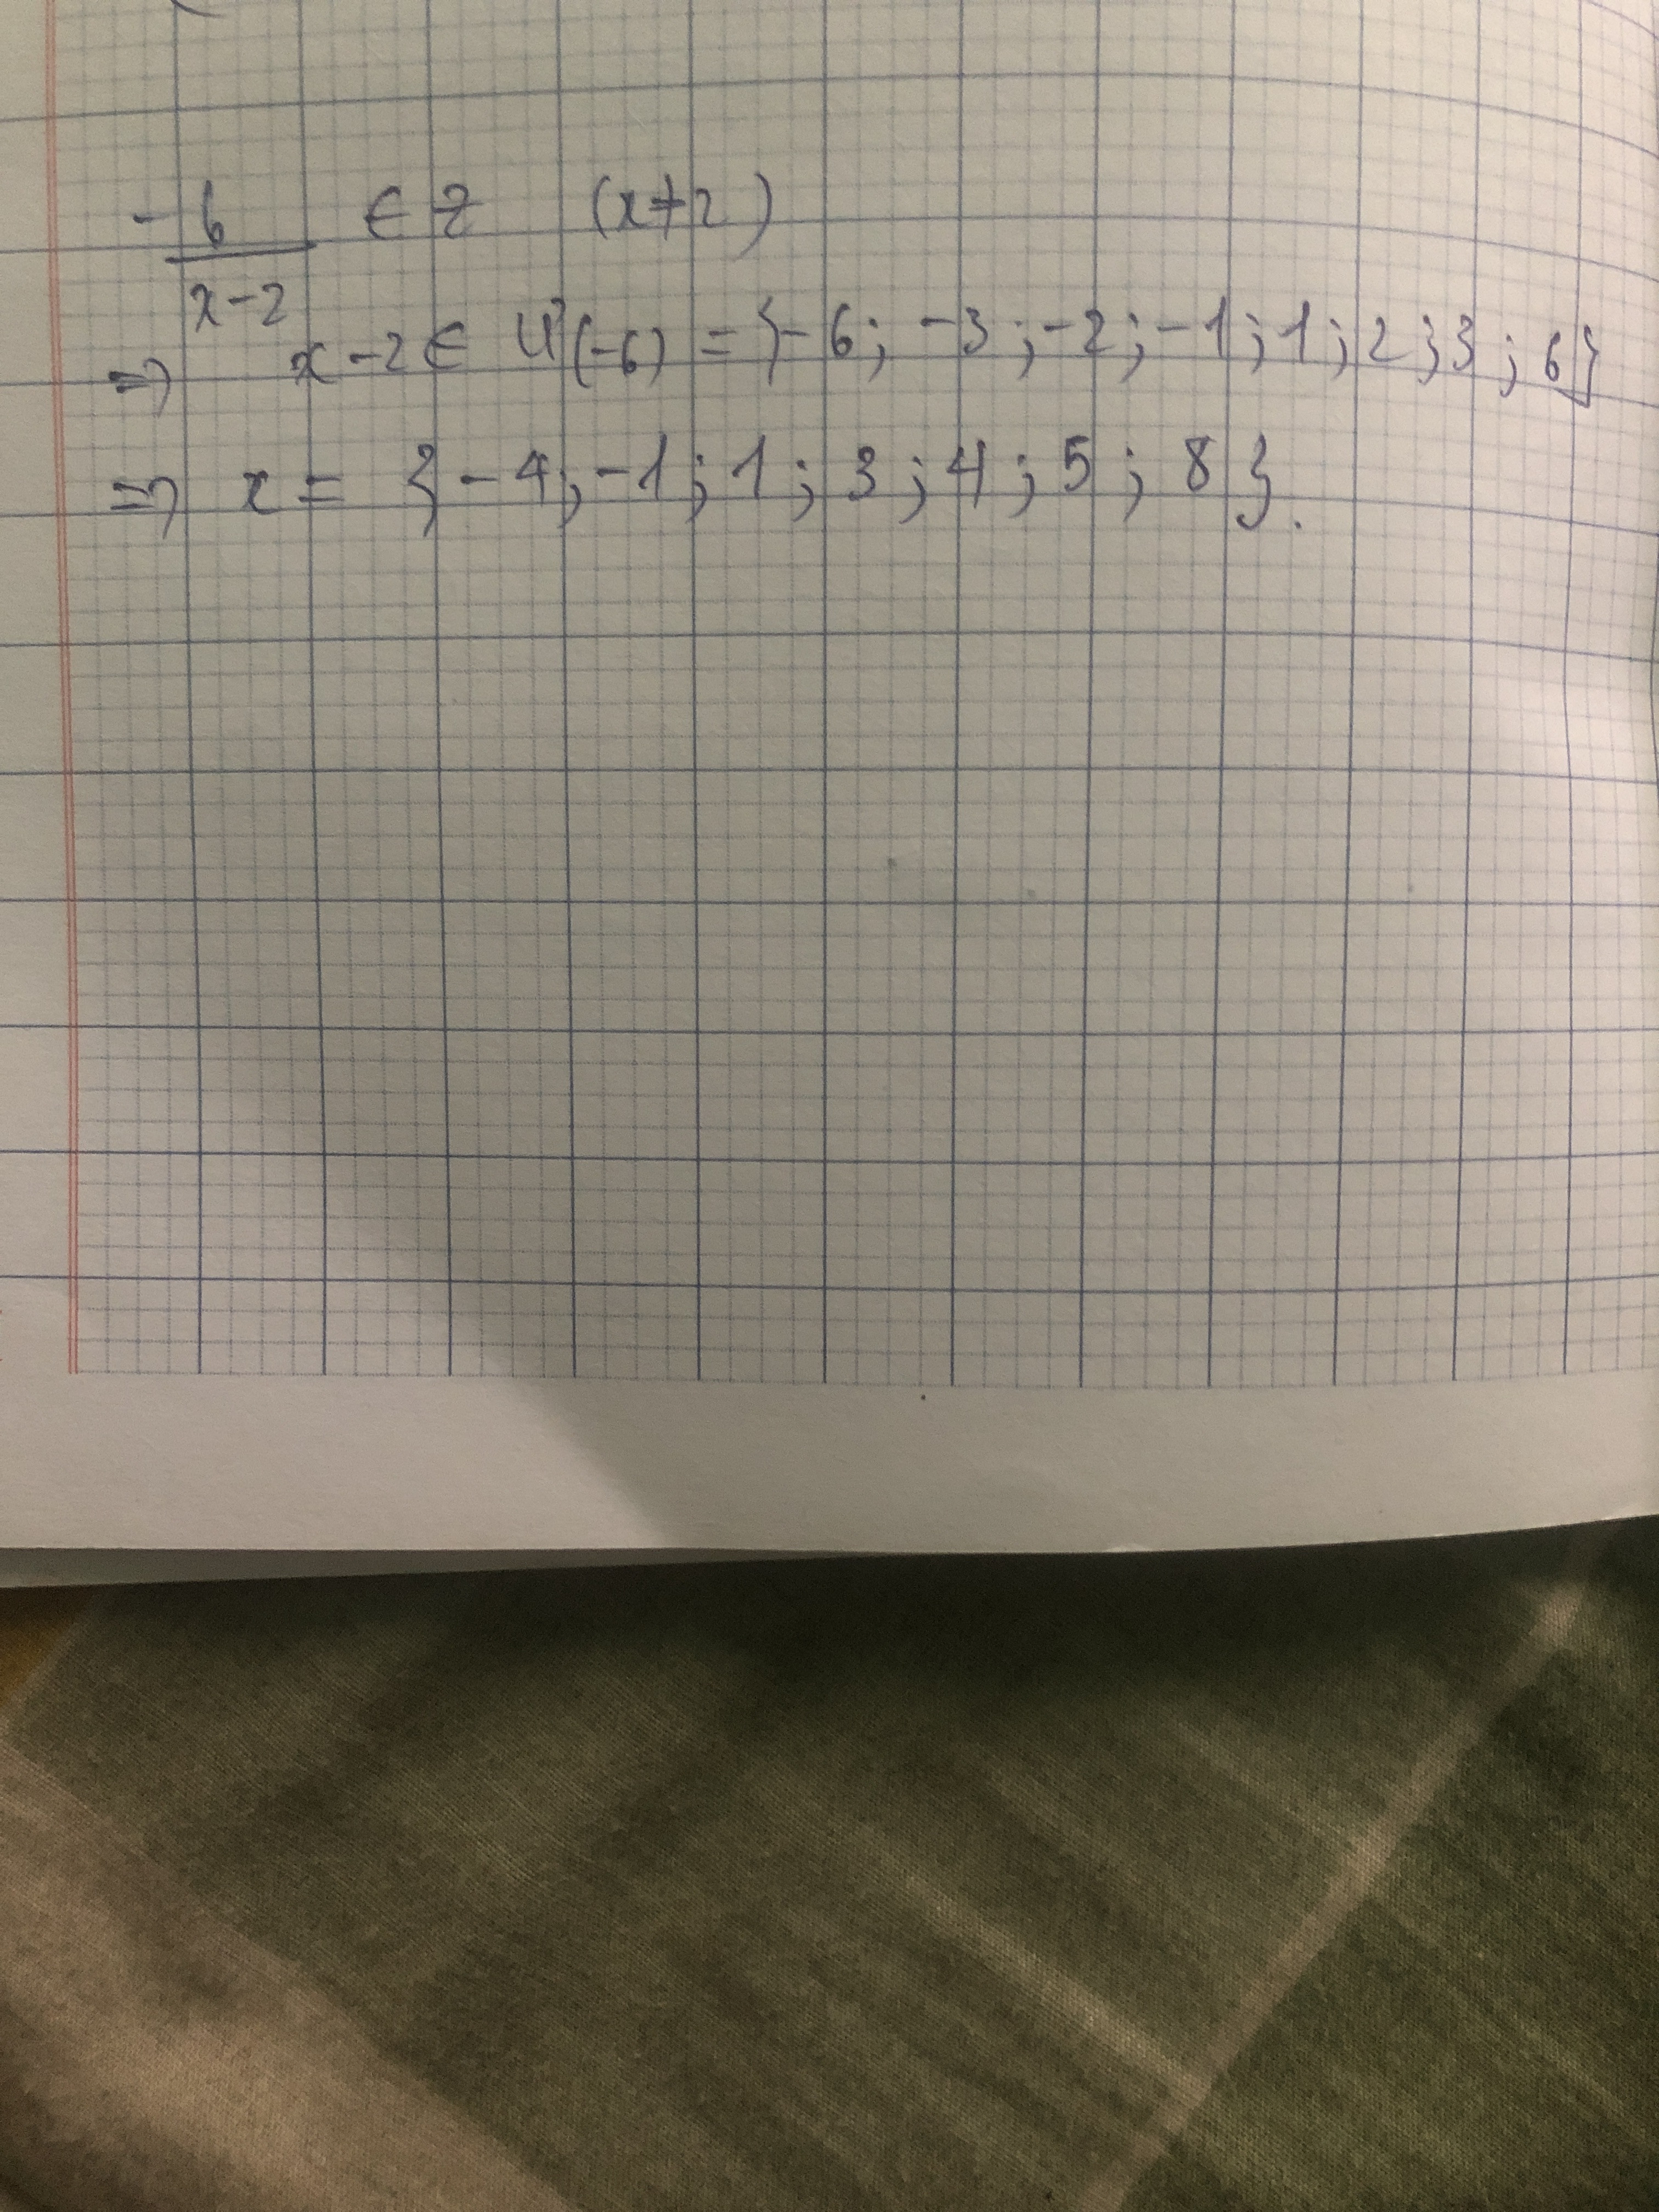 -6/(x-2) ∈ Z (x≠2)
=> x-2 ∈ Ư(-6) = {-6; -3; -2; -1; 1; 2; 3; 6}
=> x = {-4; -1; 1; 3; 4; 5; 8}.